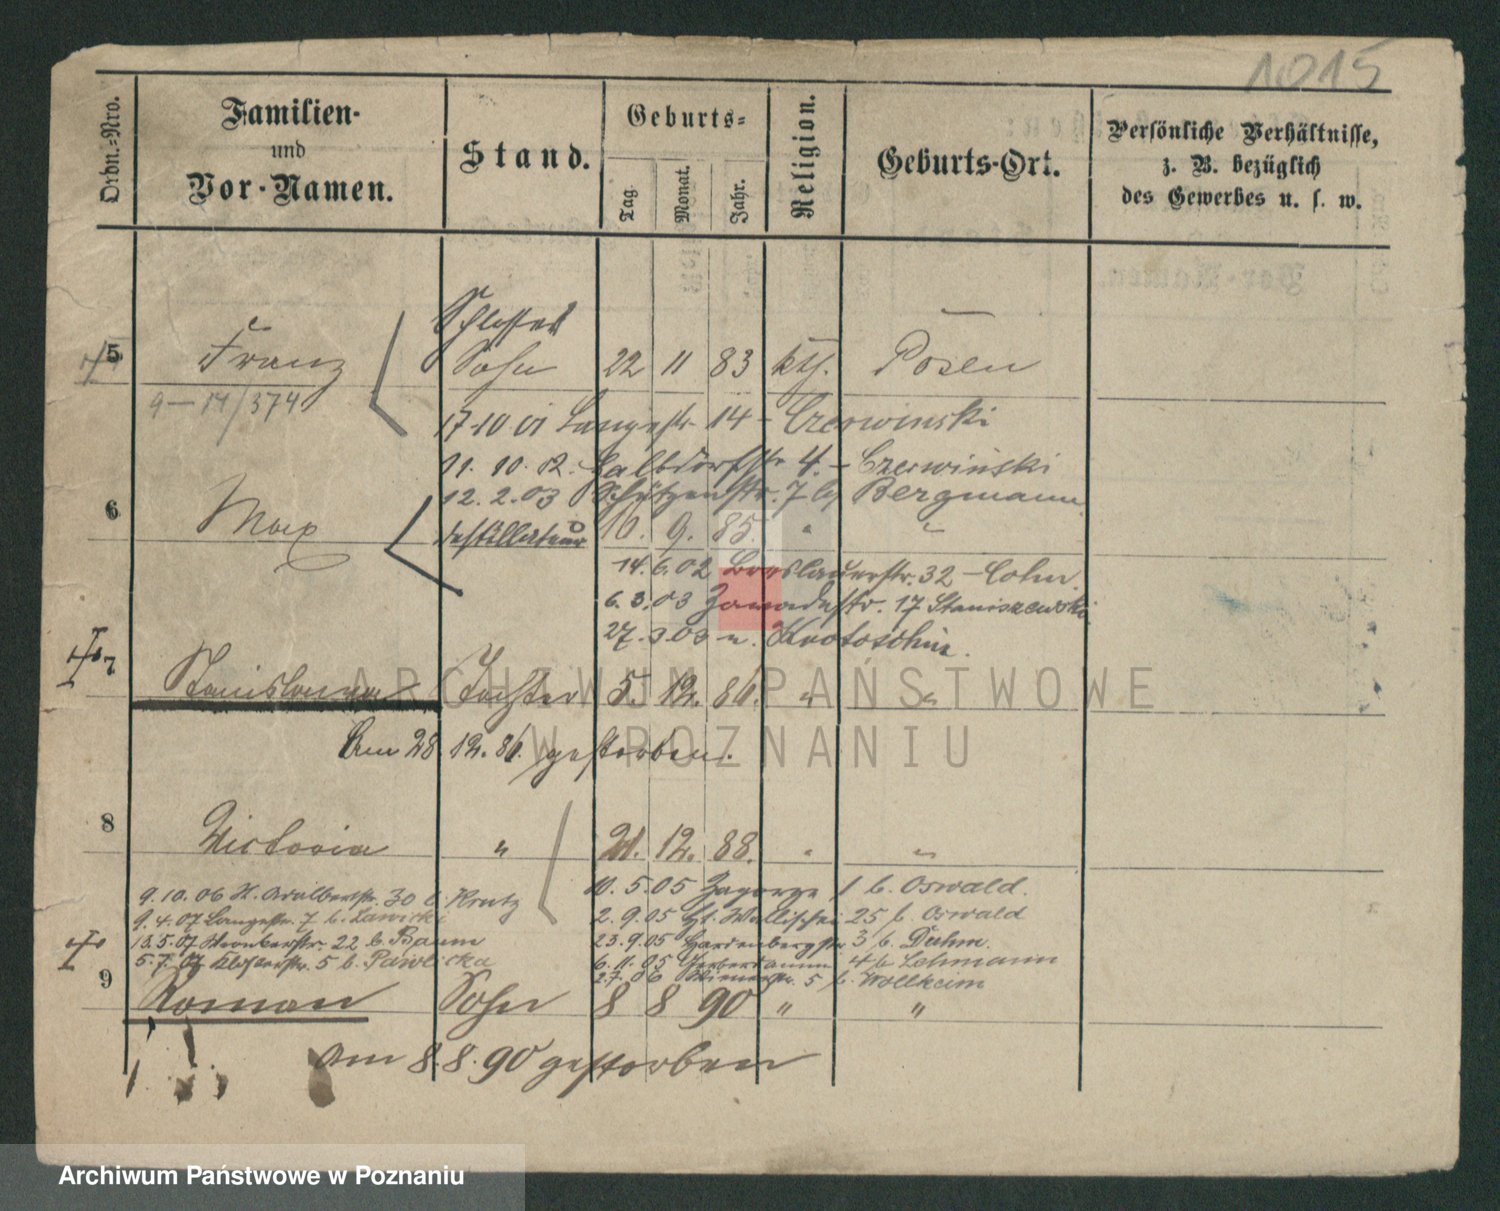 1015
Ordn.-Nro.
Familien-
und
Vor-Namen.
Stand.
Geburts-
Tag.
Monat.
Jahr.
Religion.
Geburts-Ort.
Persönliche Verhältnisse,
z. B. bezüglich
des Gewerbes u. s. w.
Schlosser
5 Franz Sohn 22 11 83 kth. Posen
9-14/374
17.10 01 Langestr. 14 - Czerwinski
11. 10. 02. Halbdorfstr. 4. - Czerwiński
12. 2. 03 Schützenstr. 7 b/ Bergmann
6 Max Destillateur 10. 9. 85. " "
14. 6. 02 Breslauerstr. 32 - Cohn.
6. 3. 03 Zawadestr. 17 Staniszewski
27. 3 03 n. Krotoschin.
7 Stanislawa Tochter 5. 12. 86. " "
ARCHIWUM PAŃSTWOWE
W POZNANIU
Am 28. 12. 86. gestorben.
8 Victoria " 21. 12. 88. " "
9. 10. 06 St. Adalbertstr. 30 b. Krutz
9. 4. 07 Langestr. 7 b. Lawicki
13. 5. 07 22 b. Baum
5. 7. 07 Klosterstr. 5 b. Pawlicka
10. 5. 05 Zagorze 1 b. Oswald.
2. 9. 05 Wallischei 25 b. Oswald
23. 9. 05 Hardenbergstr 3 b. Duhm.
6. 11. 05 Gerberdamm 4 b. Lohmann
2.7. 06 5 b. Wollheim
9 Roman Sohn 8 8 90 " "
am 8. 8. 90 gestorben
Archiwum Państwowe w Poznaniu